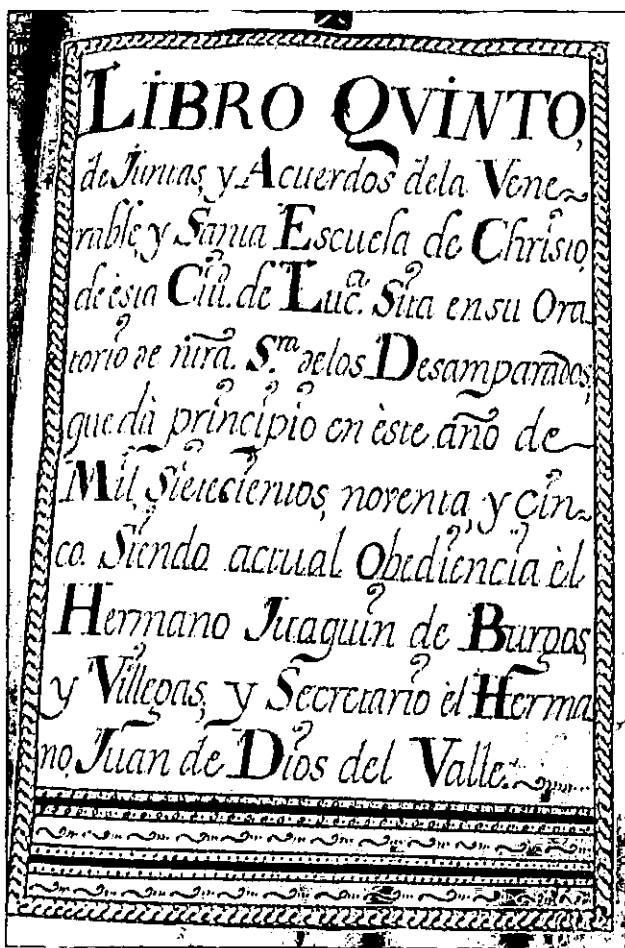 LIBRO QVINTO,
de Juntas, y Acuerdos dela Vene~
rable, y Santa Escuela de Christo,
de èsta Ciu. de Luc.ª Sita en su Ora
torio de ntrã. S.ra delos Desamparados,
que dà principio en èste año de
Mil, Sietecientos, noventa, y Cin~
co. Siendo actual Obediencia èl
Hermano Juaquin de Burgos,
y Villegas, y Secretario èl Herma
no, Juan de Dios del Valle.